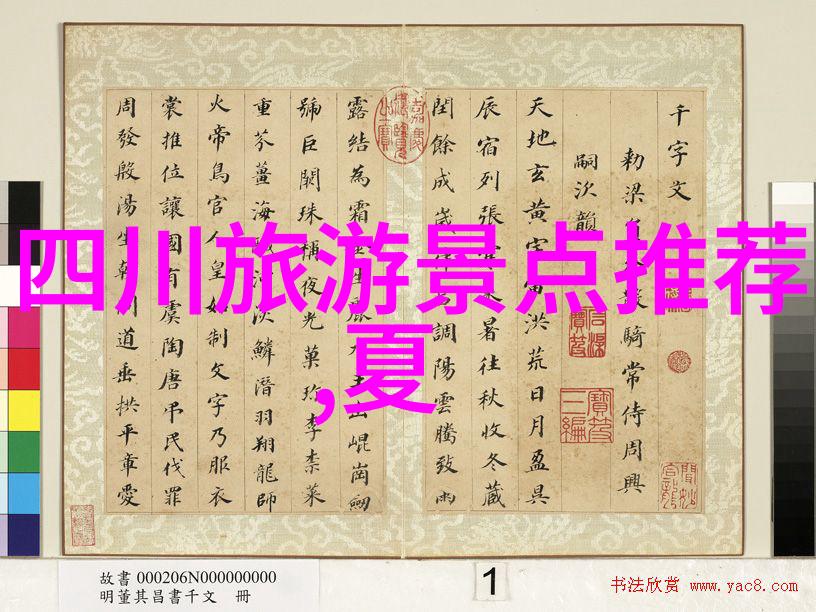 四川旅游景点推荐
,夏
千字文
勅梁騎常侍周興
嗣次韻
天地玄黃宇洪荒日月盈昃
辰宿列張暑往秋收冬藏
閏餘成歲調陽雲騰致雨
露結為霜出崐崗劒
號巨闕珠稱夜光菓珍李柰菜
重芥薑海河淡鱗潛羽翔龍師
火帝鳥官人皇始制文字乃服衣
裳推位讓國有虞陶唐弔民伐罪
周發殷湯坐朝問道垂拱平章愛
故書 000206N000000000
明董其昌書千文 冊
1
书法欣赏 www.yac8.com